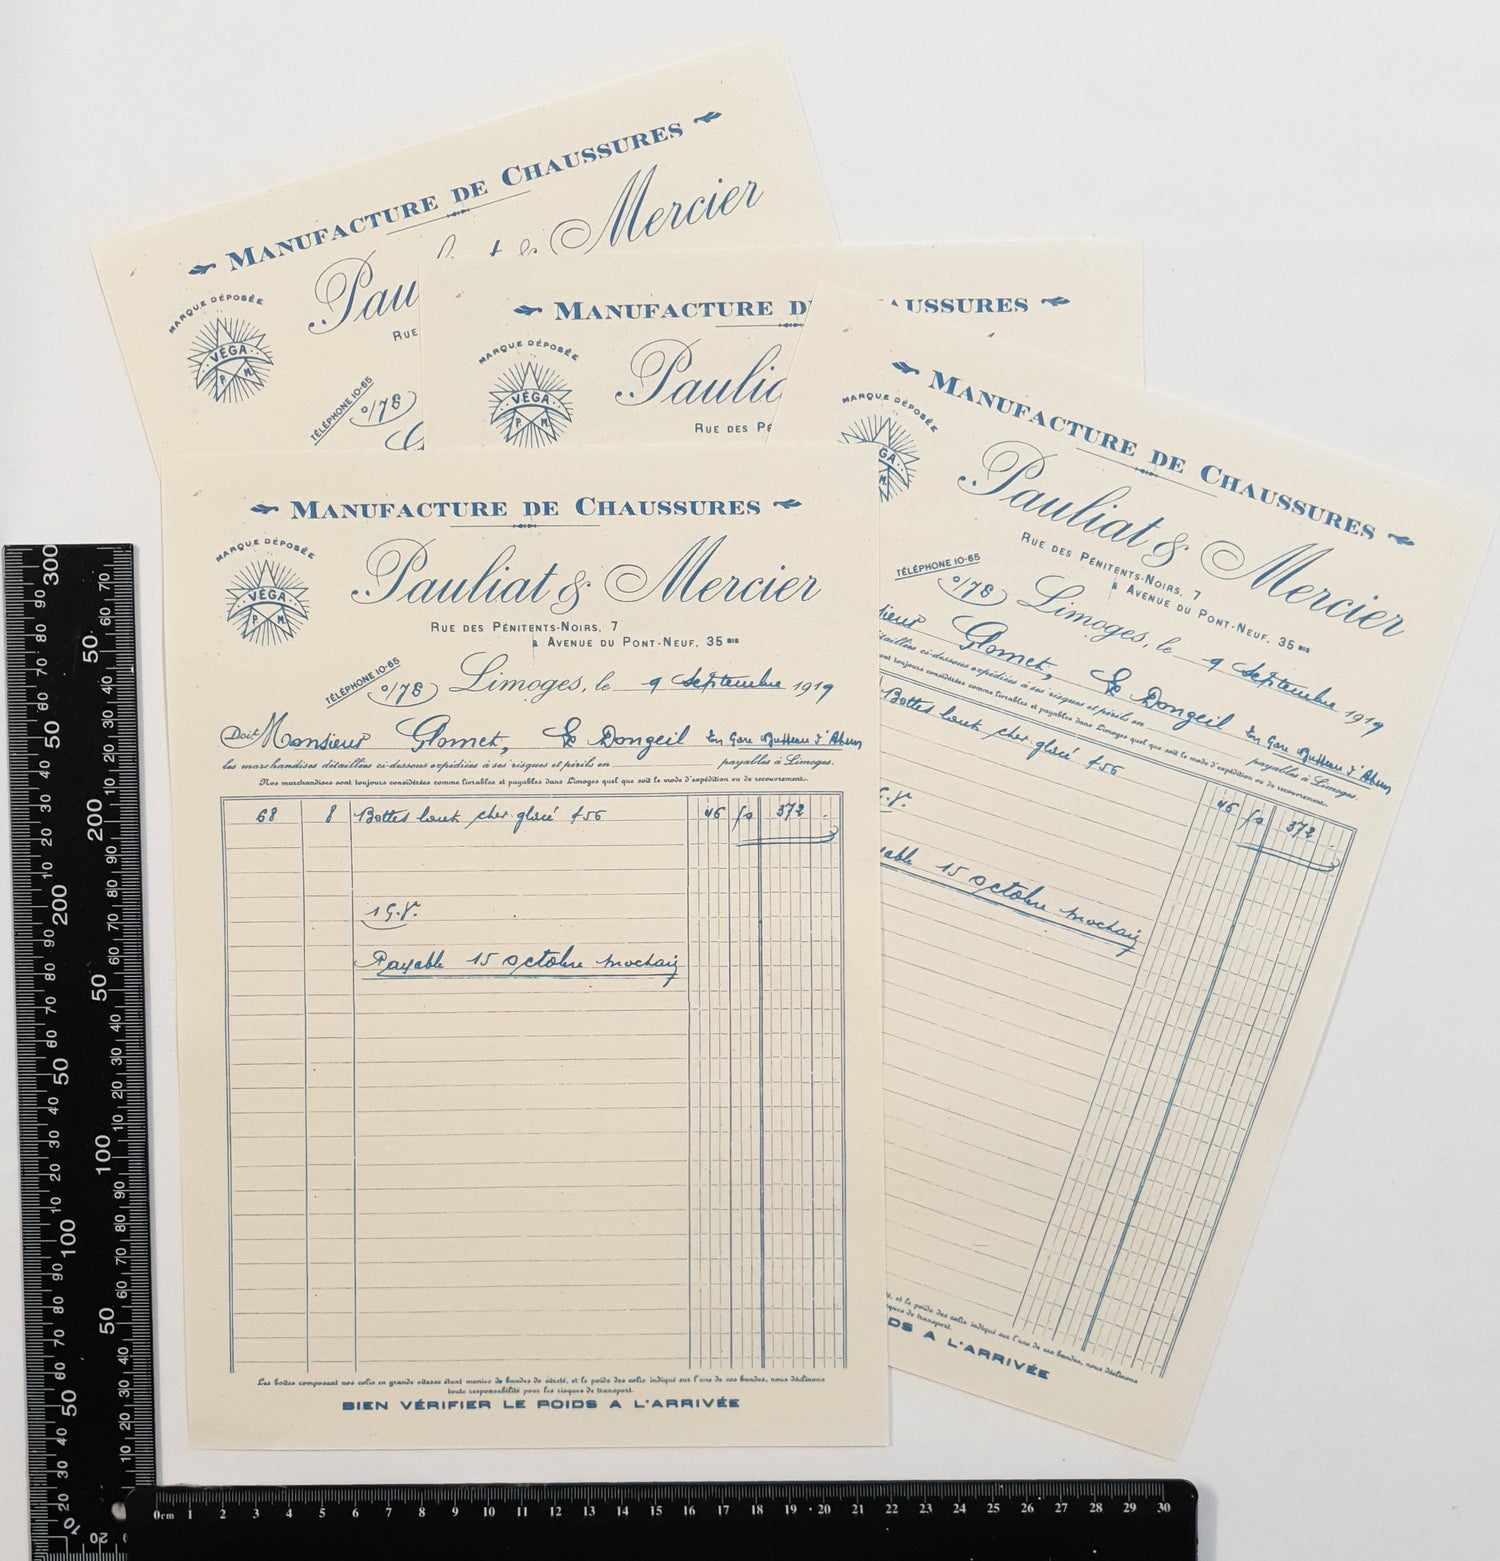 MANUFACTURE DE CHAUSSURES
MARQUE DÉPOSÉE
VÉGA
P M
Pau Mercier
RUE
TÉLÉPHONE 10-65
0/78
MANUFACTURE D AUSSURES
MARQUE DÉPOSÉE
VÉGA
P M
Paulia
RUE DES PÉ
MANUFACTURE DE CHAUSSURES
MARQUE DÉPOSÉE
VÉGA
P M
Pauliat & Mercier
RUE DES PÉNITENTS-NOIRS, 7
& AVENUE DU PONT-NEUF, 35 BIS
TÉLÉPHONE 10-65
0/78
Limoges, le 9 Septembre 1919
Doit Monsieur Glomet, Le Dongeil En Gare Busseau d'Ahun
les marchandises détaillées ci-dessous expédiées à ses risques et périls en payables à Limoges.
Nos marchandises sont toujours considérées comme livrables et payables dans Limoges quel que soit le mode d'expédition ou de recouvrement.
68 8 Bottes cher. glacé 46 50 372
1 G.V.
Payable 15 octobre prochain
Les boîtes composant nos colis en grande vitesse étant munies de bandes de sûreté, et le poids des colis indiqué sur l'une de ces bandes, nous déclinons
toute responsabilité pour les risques de transport.
BIEN VÉRIFIER LE POIDS A L'ARRIVÉE
MANUFACTURE DE CHAUSSURES
MARQUE DÉPOSÉE
GA
M
Pauliat & Mercier
RUE DES PÉNITENTS-NOIRS, 7
& AVENUE DU PONT-NEUF, 35 BIS
TÉLÉPHONE 10-65
0/78
Limoges, le 9 Septembre 1919
sieur Glomet, Le Dongeil En Gare Busseau d'Ahun
détaillées ci-dessous expédiées à ses risques et périls en payables à Limoges.
ont toujours considérées comme livrables et payables dans Limoges quel que soit le mode d'expédition ou de recouvrement.
Bottes cher. glacé 46 50 372
G.V.
able 15 octobre prochain
et le poids des colis indiqué sur l'une de ces bandes, nous déclinons
risques de transport.
DS A L'ARRIVÉE
300 90 80 70 60 50 40 30 20 10 200 90 80 70 60 50 40 30 20 10 100 90 80 70 60 50 40 30 20 10
70 60 50 40 30 20 10 200 90 80 70 60 50 40 30 20 10 100 90 80 70 60 50 40 30 20 10
0cm 1 2 3 4 5 6 7 8 9 10 11 12 13 14 15 16 17 18 19 20 21 22 23 24 25 26 27 28 29 30